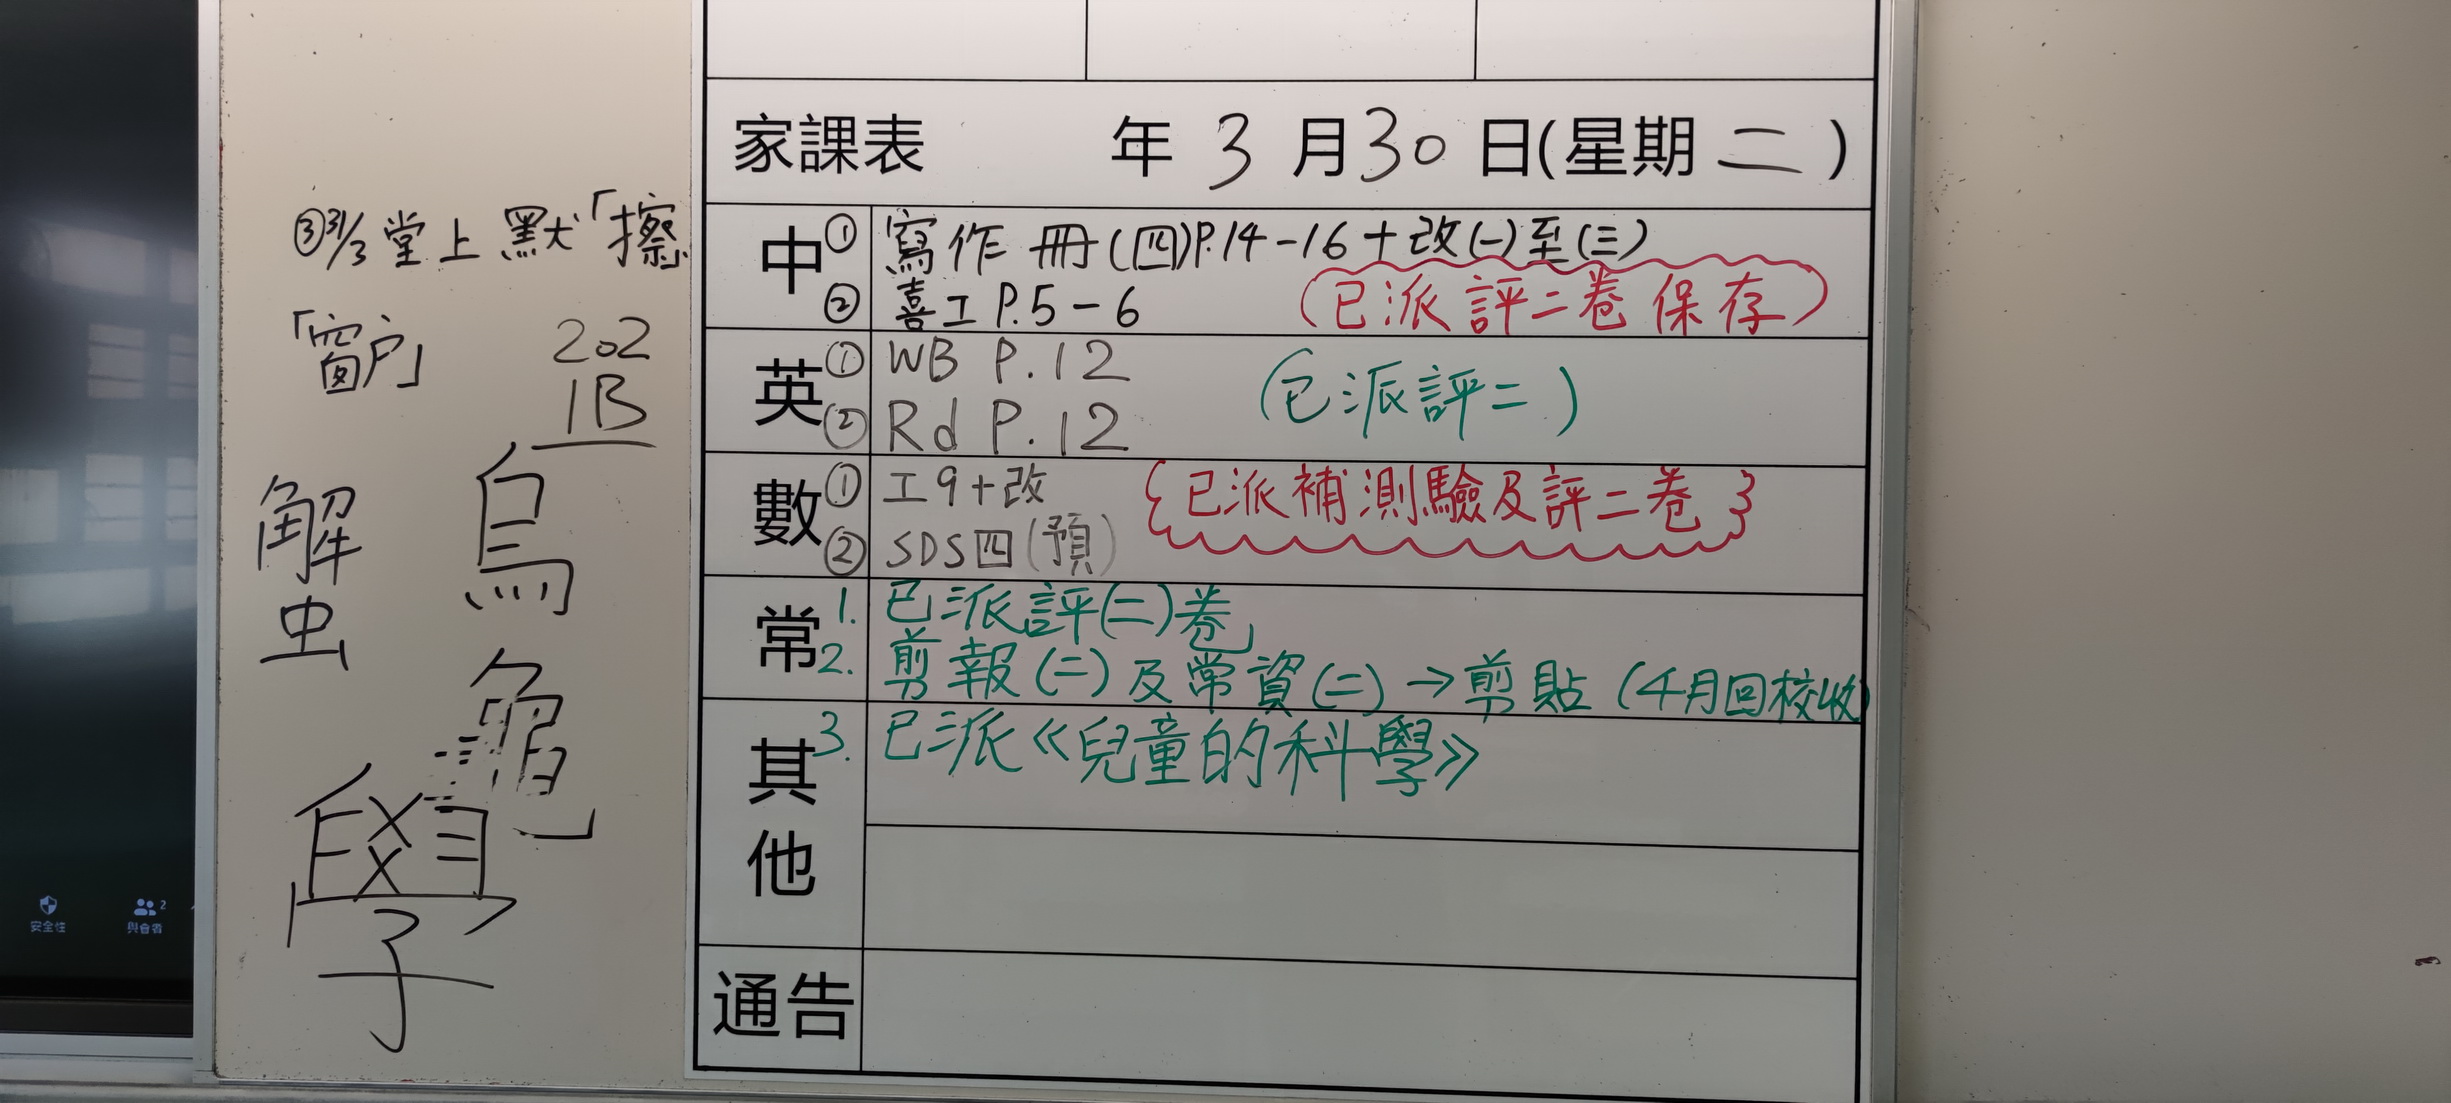 家課表 年 3 月 30 日(星期 二 )
③31/3 堂上默「擦」
「窗戶」
202
1B
解
虫
鳥
龜
學
中 ① 寫作冊(四)P.14-16+改(一)至(三)
② 喜工 P.5-6 (已派評二卷保存)
英 ① WB P.12 (已派評二)
② Rd P.12
數 ① 工9+改 {已派補測驗及評二卷}
② SDS四(預)
常 1. 已派評(二)卷
2. 剪報(二)及常資(二)→剪貼(4月回校收)
其他 3. 已派《兒童的科學》
通告
安全性
與會者 2